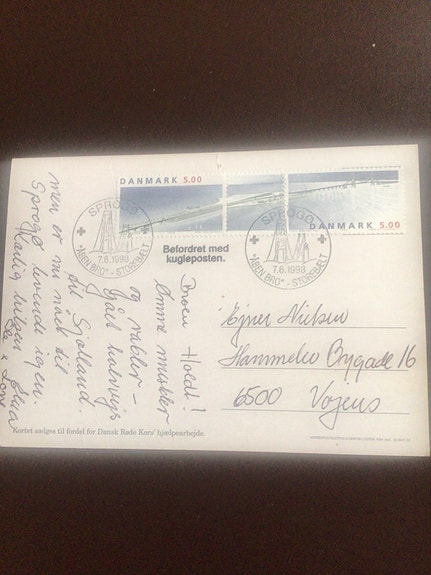 DANMARK 5.00
DANMARK 5.00
SPROGØ
7.6.1998
"ÅBEN BRO" - STOREBÆLT
SPROGØ
7.6.1998
"ÅBEN BRO" - STOREBÆLT
Befordret med
kugleposten.
Broen Holdt!
Ømme muskler
og vabler -
Gået halvvejs
til Sjælland.
men er nu nået til
Sprogø levende igen.
Kærlig hilsen
Ejner Nielsen
Hammelev Bygade 16
6500 Vojens
Kortet sælges til fordel for Dansk Røde Kors' hjælpearbejde.